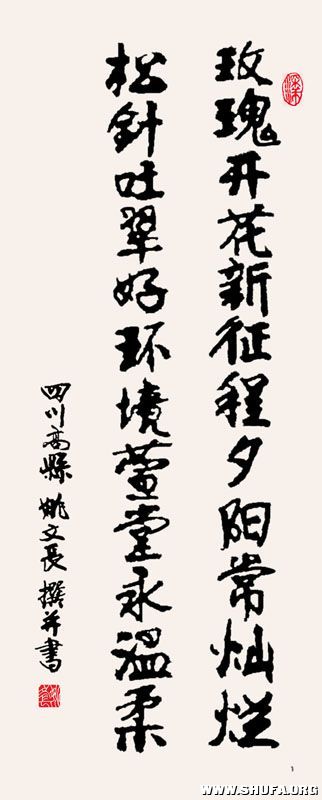 玫瑰开花新征程夕阳常灿烂
松針吐翠好环境萱堂永温柔
四川高縣 姚文長 撰并書
1
WWW.SHUFA.ORG